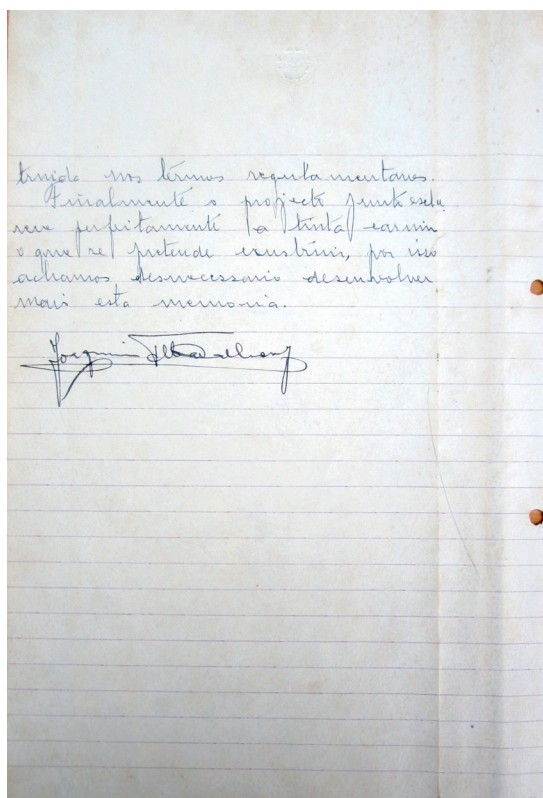 truida nos têrmos regulamentares.
Finalmente o projecto junto escla
rece perfeitamente a tinta carmin
o que se pretende construir, por isso
achamos desnecessario desenvolver
mais esta memoria.
Joaquim